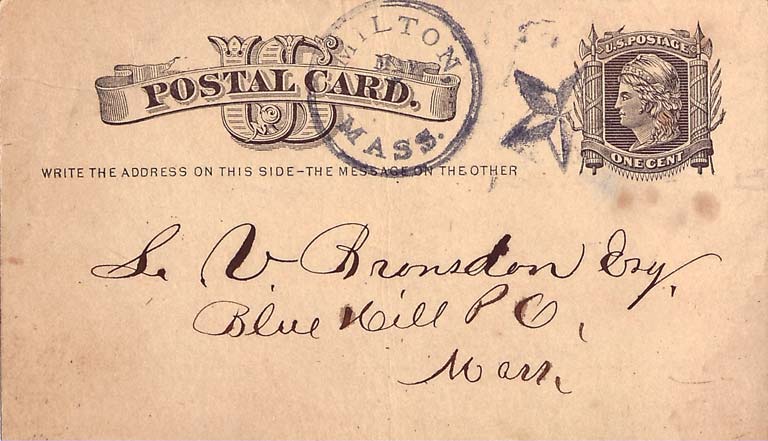 US
POSTAL CARD.
MILTON
MASS.
U.S. POSTAGE
ONE CENT
WRITE THE ADDRESS ON THIS SIDE-THE MESSAGE ON THE OTHER
V. Bronsdon Esq.
Blue Hill P O,
Mass.